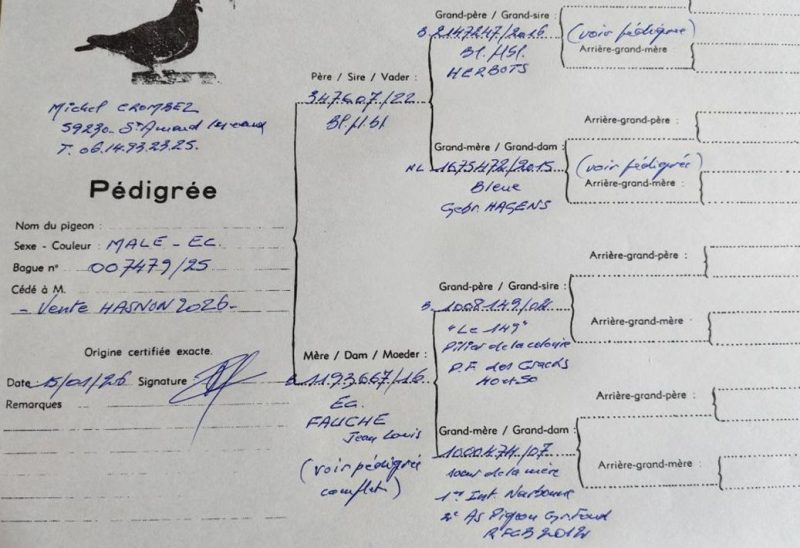 Michel CROMBEZ
59230 St Amand les eaux
T. 06.14.93.23.25.
Pédigrée
Nom du pigeon :
Sexe - Couleur : MALE - EC.
Bague n° 007479/25
Cédé à M.
- Vente HASNON 2026 -
Origine certifiée exacte.
Date 15/01/26 Signature
Remarques
Père / Sire / Vader :
347607/22
Bl.H.Bl
Mère / Dam / Moeder :
B 1193667/16
Ec.
FAUCHE
Jean Louis
(voir pédigrée
complet)
Grand-père / Grand-sire :
B 2147247/2016 (voir pédigrée)
Bl. HSp.
HERBOTS
Grand-mère / Grand-dam :
NL 1675472/2015 (voir pédigrée)
Bleue
Gebr. HAGENS
Grand-père / Grand-sire :
B. 1008149/02
"Le 149"
Pilier de la colonie
P.F. des Cracks
40 et 50
Grand-mère / Grand-dam :
1000474/07
soeur de la mère
1er Int. Narbonne
2e As Pigeon Gd fond
RFCB 2012
Arrière-grand-mère :
Arrière-grand-père :
Arrière-grand-mère :
Arrière-grand-père :
Arrière-grand-mère
Arrière-grand-père :
Arrière-grand-mère :